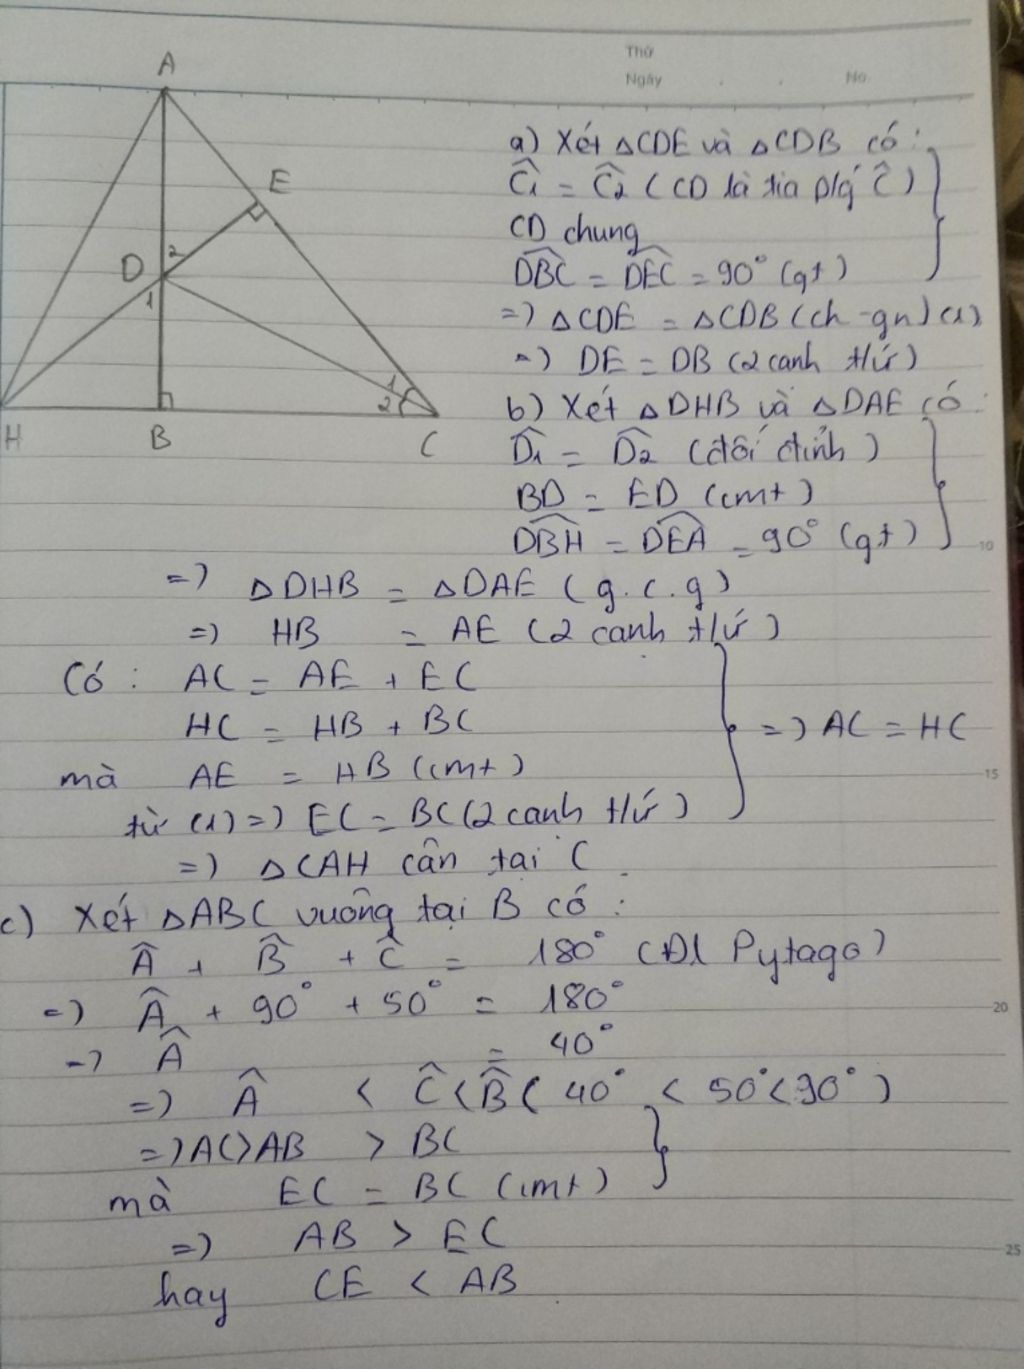 Thứ
Ngày . . No.
A
E
D
2
1
1
2
H
B
C
a) Xét △CDE và △CDB có :
Ĉ1 = Ĉ2 ( CD là tia p/g Ĉ )
CD chung
DBC = DEC = 90° (gt)
=) △CDE = △CDB (ch - gn) (1)
=) DE = DB (2 cạnh t/ứ)
b) Xét △DHB và △DAE có :
D̂1 = D̂2 (đối đỉnh )
BD = ED (cmt)
DBH = DEA = 90° (gt)
=) △DHB = △DAE ( g.c.g )
=) HB = AE (2 cạnh t/ứ )
Có : AC = AE + EC
HC = HB + BC
=) AC = HC
mà AE = HB (cmt)
từ (1) =) EC = BC (2 cạnh t/ứ )
=) △CAH cân tại C .
c) Xét △ABC vuông tại B có :
Â + B̂ + Ĉ = 180° (Đl Pytago)
=) Â + 90° + 50° = 180°
=) Â = 40°
=) Â < Ĉ < B̂ ( 40° < 50° < 90° )
=) AC > AB > BC
mà EC = BC (cmt)
=) AB > EC
hay CE < AB
10
15
20
25